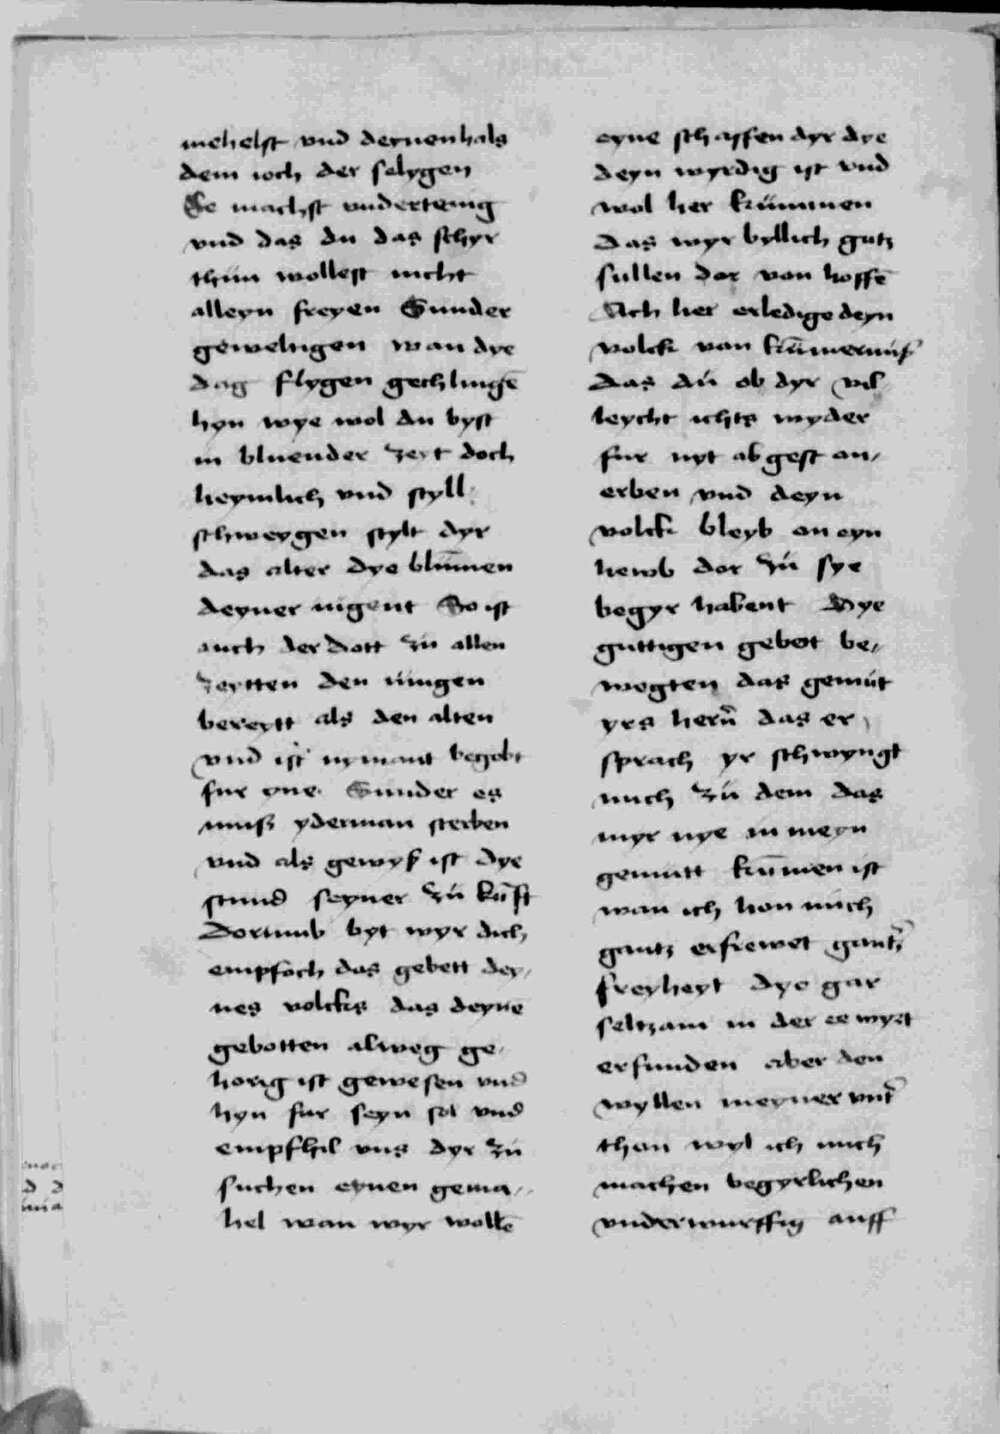 mehelst vnd deynen hals
dem ioch der selygen
Ee machst vndertenig
vnd das du das schyr
thun wollest nicht
alleyn freyen Sunder
geweltigen wan dye
dag flygen gechlingē
hyn wye wol du byst
in bluender zeyt doch
heymlich vnd styll
schweygen stylt dyr
das alter dye blūmen
deyner iugent So ist
auch der dott zu allen
zeytten den iungen
bereytt als den alten
vnd ist nymant begobt
fur yne Sunder es
muß yderman sterben
vnd als gewyß ist dye
stund seyner zu kūft
Dorumb byt wyr dich
empfoch das gebett dey-
nes volcks das deynē
gebotten alweg ge-
horig ist gewesen vnd
hyn fur seyn sol vnd
empfhil vns dyr zu
suchen eynen gema-
hel wan wyr wollē
eyne schaffen dyr dye
deyn wyrdig ist vnd
wol her kummen
Das wyr byllich gutz
sullen dor von hoffē
Ach her erledige deyn
volck van kūmernuß
Das du ob dyr vil
leycht ichts wyder
fur nyt abgest an-
erben vnd deyn
volck bleyb an eyn
hewb dor zu sye
begyr habent Dye
guttigen gebet be-
wegten das gemut
yrs hern̄ das er
sprach yr schwyngt
mich zu dem das
myr nye in meyn
gemutt kūmen ist
wan ich hon mich
gantz erfrewet gantz̾
freyheyt dye gar
seltzam in der ee wyrt
erfunden aber den
wyllen meyner vnt̾
than wyl ich mich
machen begyrlichen
vnderwurffig auff